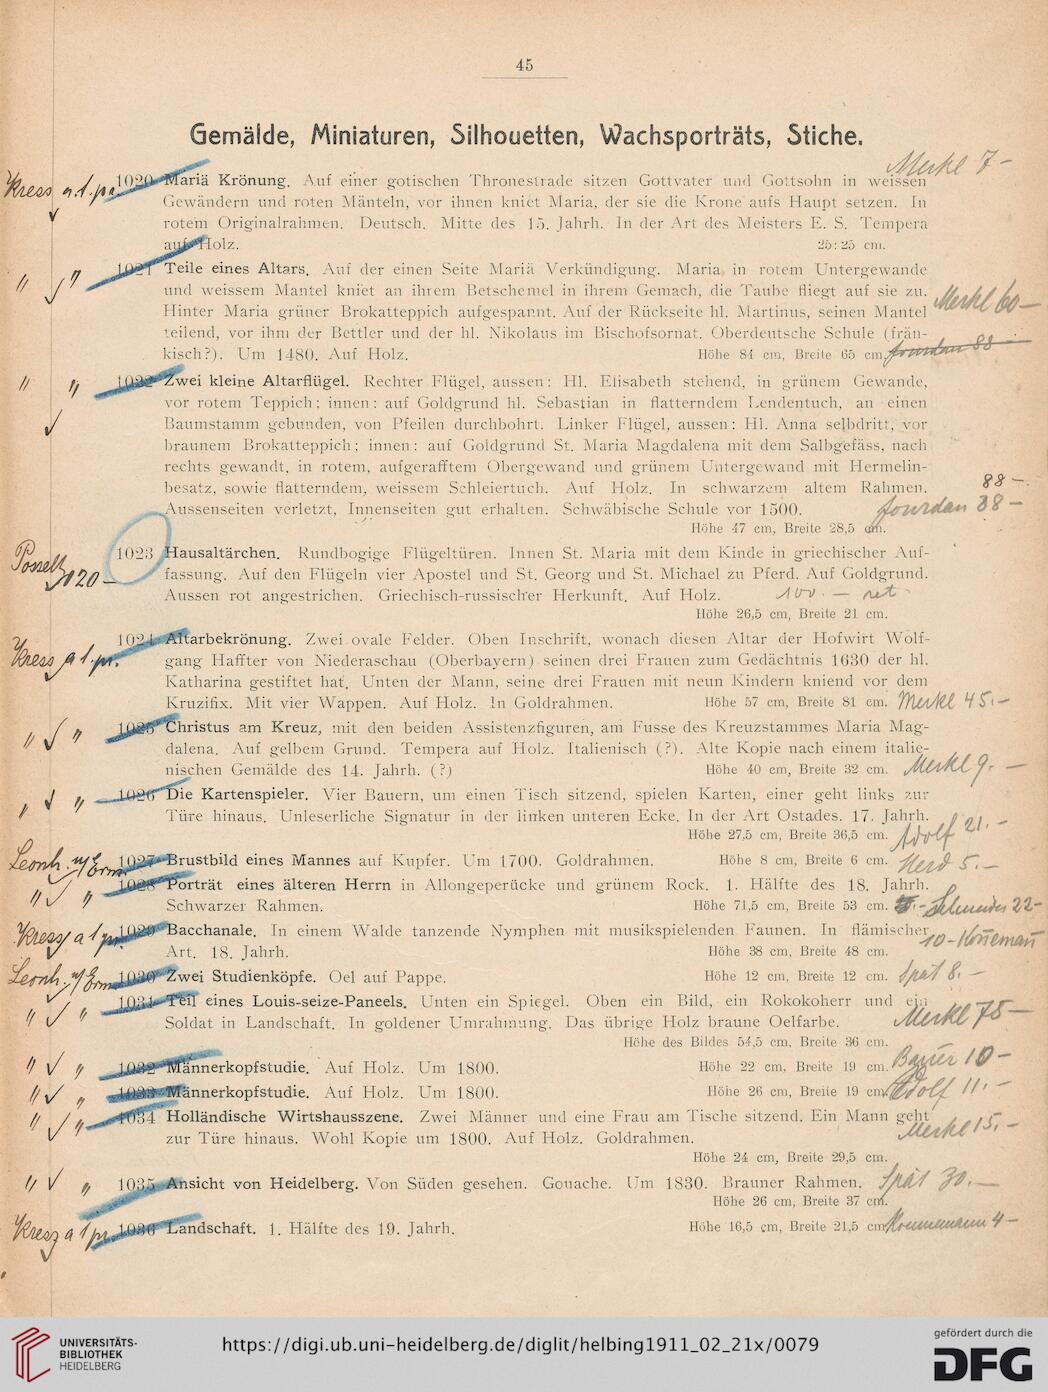 45
Gemälde, Miniaturen, Silhouetten, Wachsporträts, Stiche.
Merkl 7 –
Kress
1020 Mariä Krönung. Auf einer gotischen Thronestrade sitzen Gottvater und Gottsohn in weissen
Gewändern und roten Mänteln, vor ihnen kniet Maria, der sie die Krone aufs Haupt setzen. In
rotem Originalrahmen. Deutsch. Mitte des 15. Jahrh. In der Art des Meisters E. S. Tempera
auf Holz. 25 : 25 cm.
" " 1021 Teile eines Altars. Auf der einen Seite Mariä Verkündigung. Maria in rotem Untergewande
und weissem Mantel kniet an ihrem Betschemel in ihrem Gemach, die Taube fliegt auf sie zu.
Hinter Maria grüner Brokatteppich aufgespannt. Auf der Rückseite hl. Martinus, seinen Mantel Merkl 60 –
teilend, vor ihm der Bettler und der hl. Nikolaus im Bischofsornat. Oberdeutsche Schule (frän-
kisch?). Um 1480. Auf Holz. Höhe 84 cm, Breite 65 cm. Jourdan 88 –
" " 1022 Zwei kleine Altarflügel. Rechter Flügel, aussen: Hl. Elisabeth stehend, in grünem Gewande,
vor rotem Teppich; innen: auf Goldgrund hl. Sebastian in flatterndem Lendentuch, an einen
Baumstamm gebunden, von Pfeilen durchbohrt. Linker Flügel, aussen: Hl. Anna selbdritt, vor
braunem Brokatteppich; innen: auf Goldgrund St. Maria Magdalena mit dem Salbgefäss, nach
rechts gewandt, in rotem, aufgerafftem Obergewand und grünem Untergewand mit Hermelin-
besatz, sowie flatterndem, weissem Schleiertuch. Auf Holz. In schwarzem altem Rahmen. 88 –
Aussenseiten verletzt, Innenseiten gut erhalten. Schwäbische Schule vor 1500. Jourdan 88 –
Höhe 47 cm, Breite 28,5 cm.
1023 Hausaltärchen. Rundbogige Flügeltüren. Innen St. Maria mit dem Kinde in griechischer Auf-
fassung. Auf den Flügeln vier Apostel und St. Georg und St. Michael zu Pferd. Auf Goldgrund.
Aussen rot angestrichen. Griechisch-russischer Herkunft. Auf Holz. 100. – ret
Höhe 26,5 cm, Breite 21 cm.
1024 Altarbekrönung. Zwei ovale Felder. Oben Inschrift, wonach diesen Altar der Hofwirt Wolf-
Kress
gang Haffter von Niederaschau (Oberbayern) seinen drei Frauen zum Gedächtnis 1630 der hl.
Katharina gestiftet hat. Unten der Mann, seine drei Frauen mit neun Kindern kniend vor dem
Kruzifix. Mit vier Wappen. Auf Holz. In Goldrahmen. Höhe 57 cm, Breite 81 cm. Merkl 45. –
" " 1025 Christus am Kreuz, mit den beiden Assistenzfiguren, am Fusse des Kreuzstammes Maria Mag-
dalena. Auf gelbem Grund. Tempera auf Holz. Italienisch (?). Alte Kopie nach einem italie-
nischen Gemälde des 14. Jahrh. (?) Höhe 40 cm, Breite 32 cm. Merkl 9. –
" " 1026 Die Kartenspieler. Vier Bauern, um einen Tisch sitzend, spielen Karten, einer geht links zur
Türe hinaus. Unleserliche Signatur in der linken unteren Ecke. In der Art Ostades. 17. Jahrh.
Höhe 27,5 cm, Breite 36,5 cm. Adolf 21. –
Leonh.
1027 Brustbild eines Mannes auf Kupfer. Um 1700. Goldrahmen. Höhe 8 cm, Breite 6 cm. 5. –
" " 1028 Porträt eines älteren Herrn in Allongeperücke und grünem Rock. 1. Hälfte des 18. Jahrh.
Schwarzer Rahmen. Höhe 71,5 cm, Breite 53 cm. Schneider 22 –
Kress
1029 Bacchanale. In einem Walde tanzende Nymphen mit musikspielenden Faunen. In flämischer
Art. 18. Jahrh. Höhe 38 cm, Breite 48 cm. 10 –
Leonh.
1030 Zwei Studienköpfe. Oel auf Pappe. Höhe 12 cm, Breite 12 cm. Spät 8. –
" " 1031 Teil eines Louis-seize-Paneels. Unten ein Spiegel. Oben ein Bild, ein Rokokoherr und ein
Soldat in Landschaft. In goldener Umrahmung. Das übrige Holz braune Oelfarbe. Merkl 75 –
Höhe des Bildes 54,5 cm, Breite 36 cm.
" " 1032 Männerkopfstudie. Auf Holz. Um 1800. Höhe 22 cm, Breite 19 cm. Bauer 10 –
" " 1033 Männerkopfstudie. Auf Holz. Um 1800. Höhe 26 cm, Breite 19 cm. Adolf 11. –
" " 1034 Holländische Wirtshausszene. Zwei Männer und eine Frau am Tische sitzend. Ein Mann geht
zur Türe hinaus. Wohl Kopie um 1800. Auf Holz. Goldrahmen. Merkl 15. –
Höhe 24 cm, Breite 29,5 cm.
" " 1035 Ansicht von Heidelberg. Von Süden gesehen. Gouache. Um 1830. Brauner Rahmen. Spät 30. –
Höhe 26 cm, Breite 37 cm.
1036 Landschaft. 1. Hälfte des 19. Jahrh. Höhe 16,5 cm, Breite 21,5 cm. 4 –
UNIVERSITÄTS-
BIBLIOTHEK
HEIDELBERG
https://digi.ub.uni-heidelberg.de/diglit/helbing1911_02_21x/0079
gefördert durch die
DFG